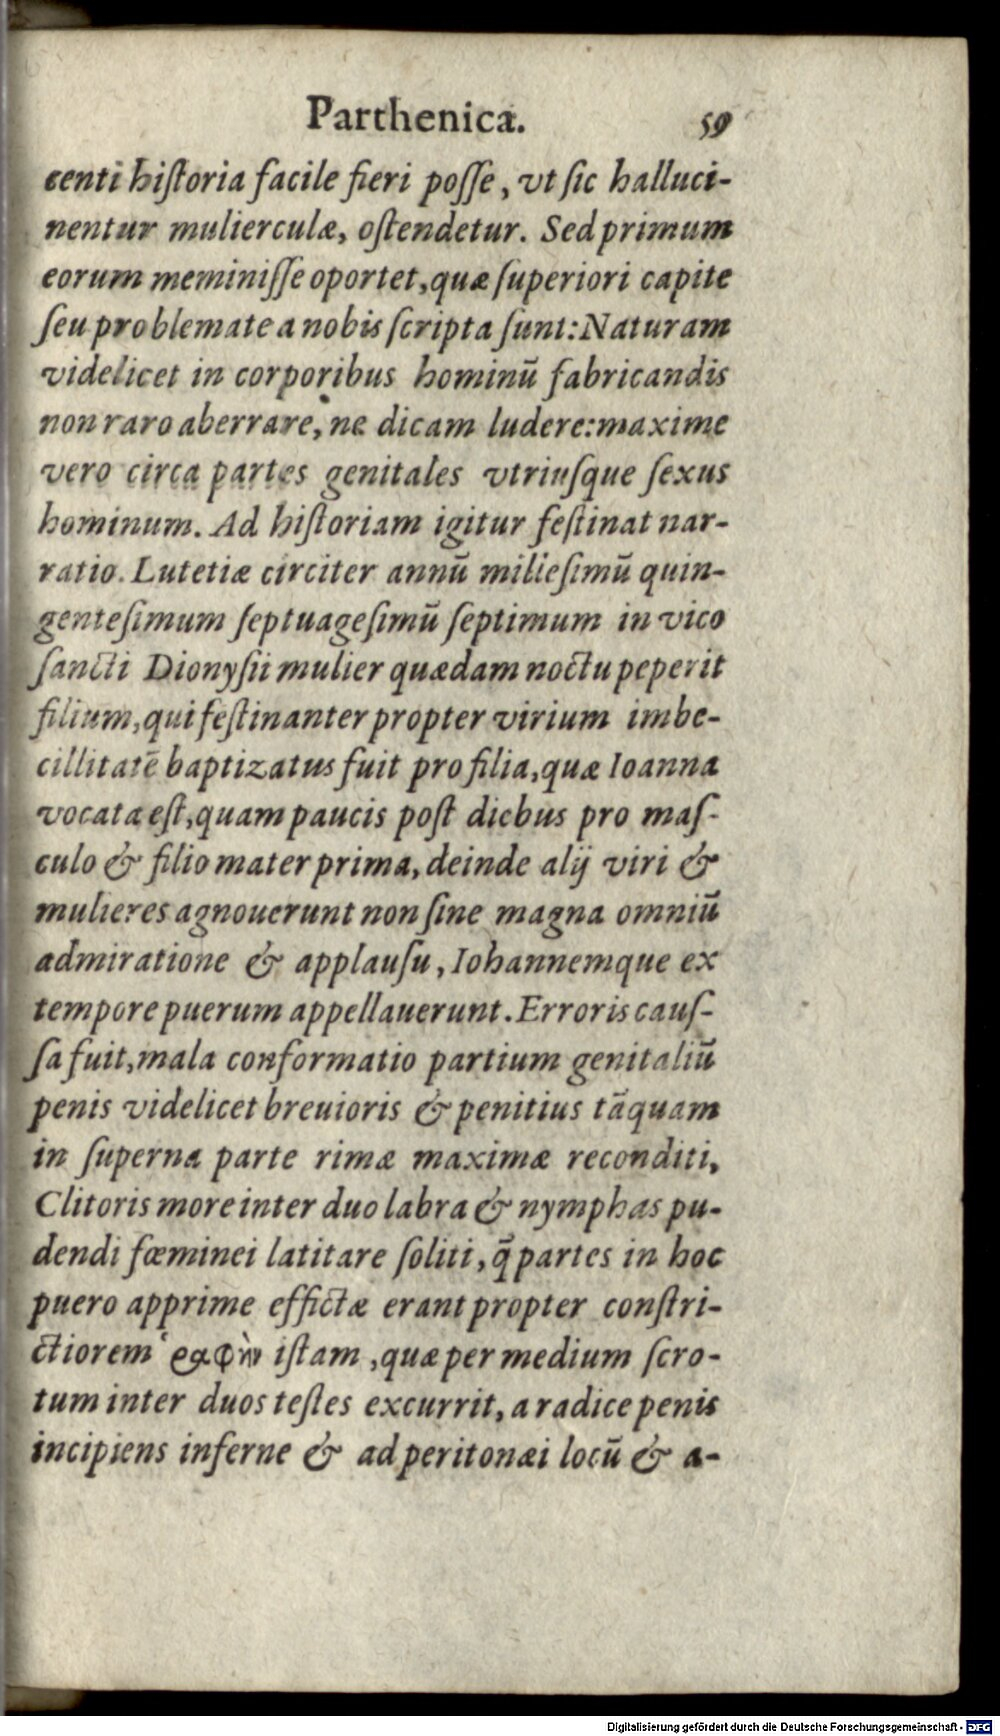 Parthenica. 59
centi hiſtoria facile fieri poſſe, vt ſic halluci-
nentur mulierculæ, oſtendetur. Sed primum
eorum meminiſſe oportet, quæ ſuperiori capite
ſeu problemate a nobis ſcripta ſunt: Naturam
videlicet in corporibus hominū fabricandis
non raro aberrare, ne dicam ludere: maxime
vero circa partes genitales vtriuſque ſexus
hominum. Ad hiſtoriam igitur feſtinat nar-
ratio. Lutetiæ circiter annū milieſimū quin-
genteſimum ſeptuageſimū ſeptimum in vico
ſancti Dionyſii mulier quædam noctu peperit
filium, qui feſtinanter propter virium imbe-
cillitatē baptizatus fuit pro filia, quæ Ioanna
vocata eſt, quam paucis poſt diebus pro maſ-
culo & filio mater prima, deinde alij viri &
mulieres agnouerunt non ſine magna omniū
admiratione & applauſu, Iohannemque ex
tempore puerum appellauerunt. Erroris cauſ-
ſa fuit, mala conformatio partium genitaliū
penis videlicet breuioris & penitius tāquam
in ſuperna parte rimæ maximæ reconditi,
Clitoris more inter duo labra & nymphas pu-
dendi fœminei latitare ſoliti, q̄ partes in hoc
puero apprime effictæ erant propter conſtri-
ctiorem ῥαφὴν iſtam, quæ per medium ſcro-
tum inter duos teſtes excurrit, a radice penis
incipiens inferne & ad peritonæi locū & a-
Digitalisierung gefördert durch die Deutsche Forschungsgemeinschaft - DFG